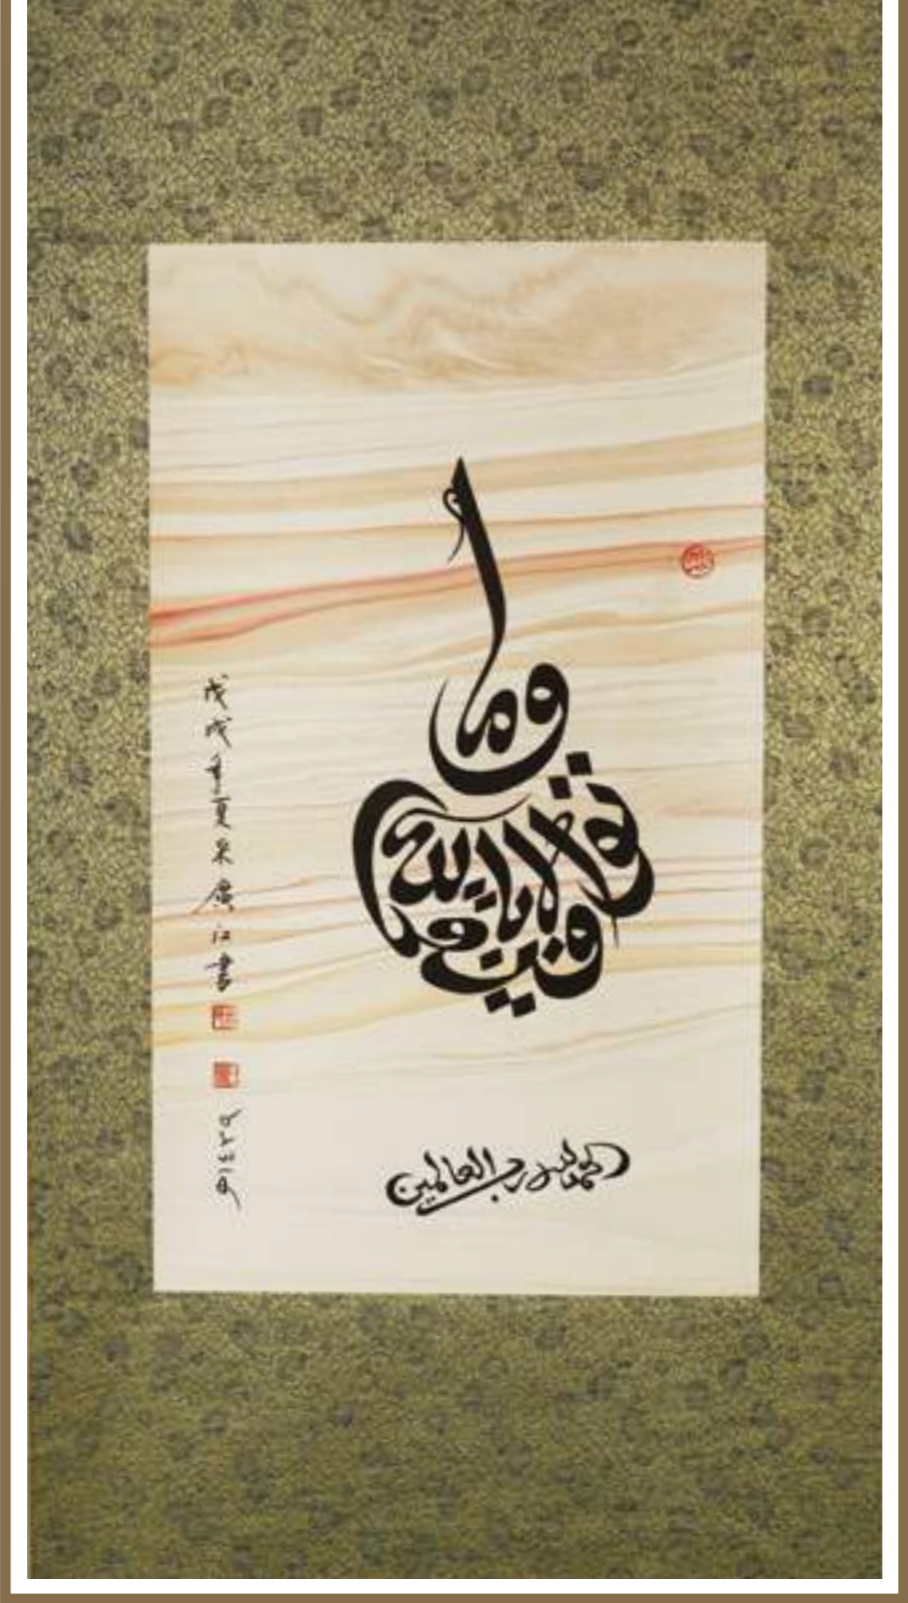 وما توفيقي إلا بالله
الحمد لله رب العالمين
戊戌年夏米廣江書